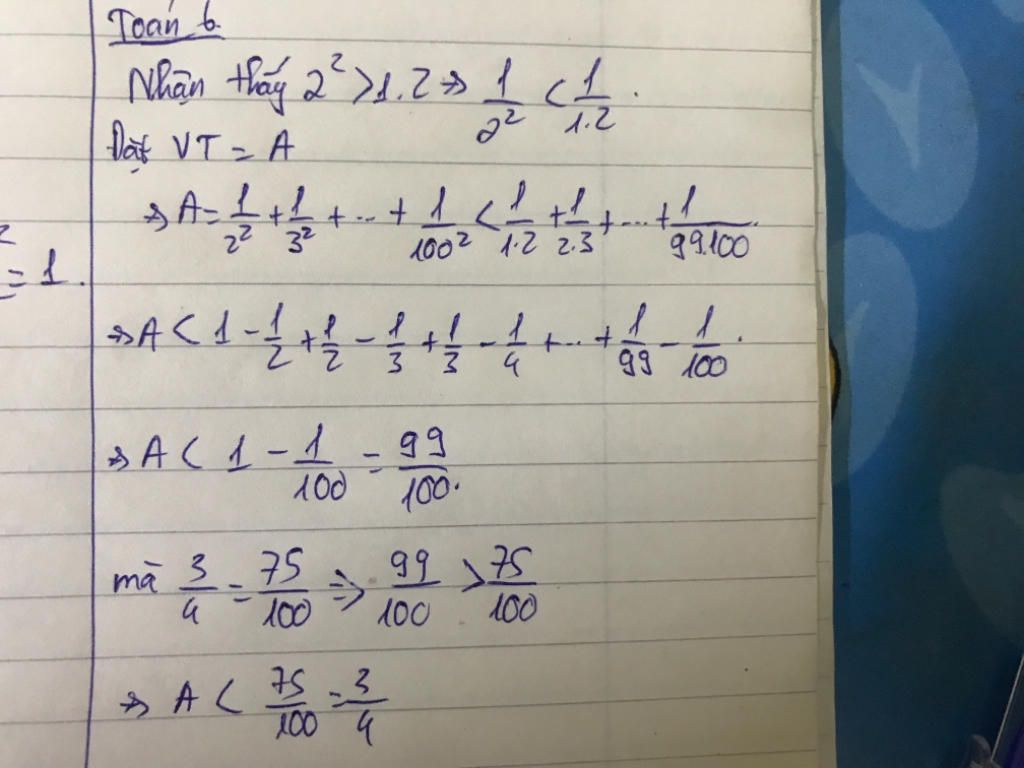 Toán 6
Nhận thấy 2² > 1.2 => 1/2² < 1/1.2.
Đặt VT = A
=> A = 1/2² + 1/3² + ... + 1/100² < 1/1.2 + 1/2.3 + ... + 1/99.100.
2
= 1.
=> A < 1 - 1/2 + 1/2 - 1/3 + 1/3 - 1/4 + ... + 1/99 - 1/100.
=> A < 1 - 1/100 = 99/100.
mà 3/4 = 75/100 => 99/100 > 75/100
=> A < 75/100 = 3/4